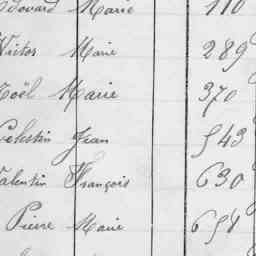 Edouard Marie 110
Victor Marie 289
Noël Marie 370
Célestin Jean 543
Valentin François 630
Pierre Marie 658